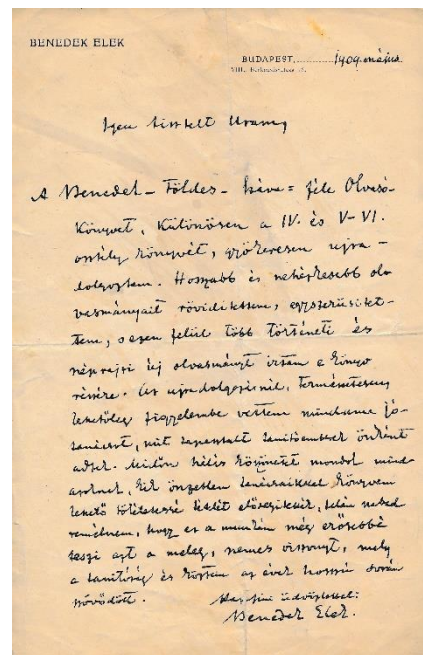 BENEDEK ELEK
BUDAPEST, 1909. május
VIII.
Igen tisztelt Uram,
A Benedek - Földes - Káva = féle Olvasó-
könyvet, különösen a IV. és V-VI.
osztály könyvét, gyökeresen ujra-
dolgoztam. Hosszabb és nehézkesebb ol-
vasmányait rövidítettem, egyszerüsítet-
tem, s ezen felül több történeti és
néprajzi új olvasmányt írtam e könyv
részére. Az ujradolgozásnál, természetesen
lehetőleg figyelembe vettem mindama jó-
tanácsot, mit tapasztalt tanítóemberek önként
adtak. Midőn hálás köszönetet mondok mind-
azoknak, kik önzetlen tanácsaikkal könyvem
lehető tökéletessé tételét elősegítették, talán szabad
remélnem, hogy ez a munkám még erősebbé
teszi azt a meleg, nemes viszonyt, mely
a tanítóság és köztem az évek hosszú során
szövődött.
üdvözlettel:
Benedek Elek.